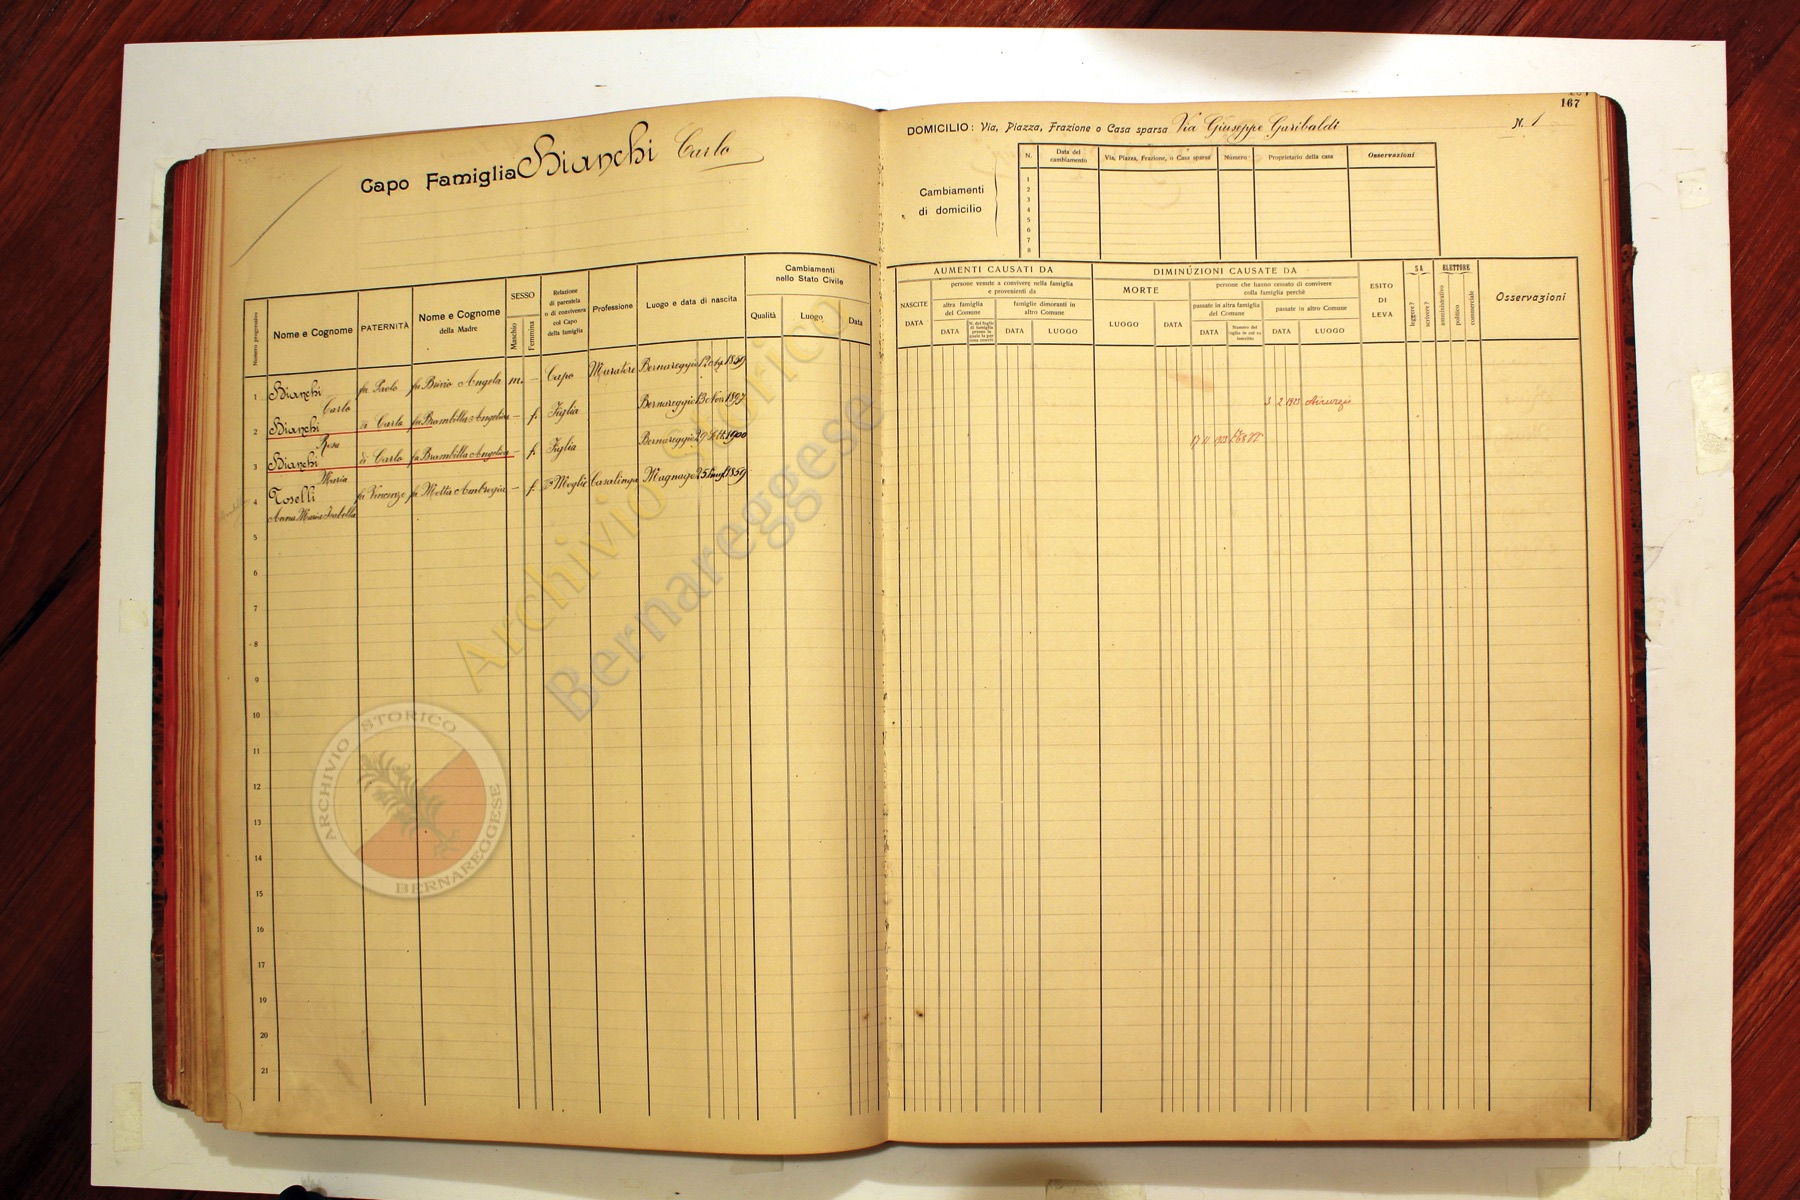 167
Capo Famiglia Bianchi Carlo
DOMICILIO: Via, Piazza, Frazione o Casa sparsa Via Giuseppe Garibaldi N. 1
Cambiamenti
di domicilio
N. Data del cambiamento Via, Piazza, Frazione, o Casa sparsa Numero Proprietario della casa Osservazioni
1
2
3
4
5
6
7
8
Numero progressivo
Nome e Cognome
PATERNITÀ
Nome e Cognome
della Madre
SESSO
Maschio
Femmina
Relazione
di parentela
o di convivenza
col Capo
della famiglia
Professione
Luogo e data di nascita
Cambiamenti
nello Stato Civile
Qualità Luogo Data
AUMENTI CAUSATI DA
NASCITE
DATA
persone venute a convivere nella famiglia
e provenienti da
altra famiglia
del Comune
famiglie dimoranti in
altro Comune
DATA
DATA LUOGO
DIMINUZIONI CAUSATE DA
MORTE
LUOGO DATA
persone che hanno cessato di convivere
colla famiglia perchè
passate in altra famiglia
del Comune
passate in altro Comune
DATA
DATA LUOGO
ESITO
DI
LEVA
SA
leggere?
scrivere?
ELETTORE
amministrativo
politico
commerciale
Osservazioni
1 Bianchi Carlo fu Paolo fu Brivio Angela m. – Capo Muratore Bernareggio 12 1859
2 Bianchi Rosa di Carlo fu Brambilla Angelina – f. Figlia Bernareggio 13 Nov 1897
3 2 1923
3 Bianchi Maria di Carlo fu Brambilla Angelina – f. Figlia Bernareggio 29 Sett 1900
17 11
4 Toselli Anna Maria Isabella fu Vincenzo fu Motta Ambrogia – f. Moglie Casalinga Magnago 25 1859
5
6
7
8
9
10
11
12
13
14
15
16
17
19
20
21
Archivio Storico
Bernareggese
ARCHIVIO STORICO
BERNAREGGESE